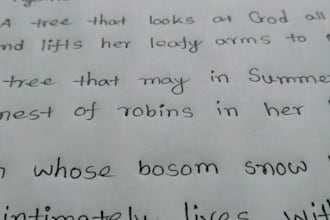 A tree that looks at God all
nd lifts her leafy arms to
tree that may in Summe
nest of robins in her
whose bosom snow
intimately lives wit